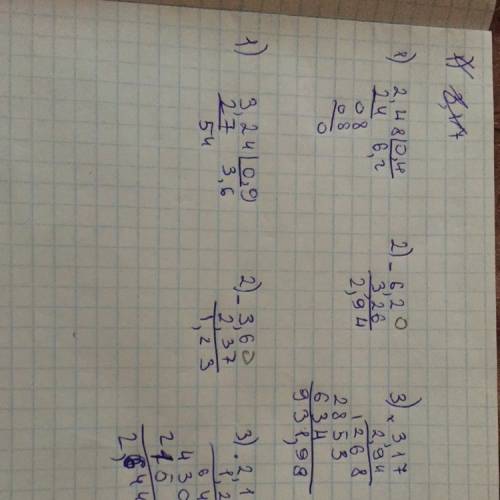 1) 2,48 | 0,4
2,4 6,2
08
08
0
2) - 6,20
3,26
2,94
3) × 3,17
2,94
1268
2853
634
1) 3,24 | 0,9
2,7 3,6
54
2) - 3,60
2,37
1,23
3) · 2,1
1,2
64
430